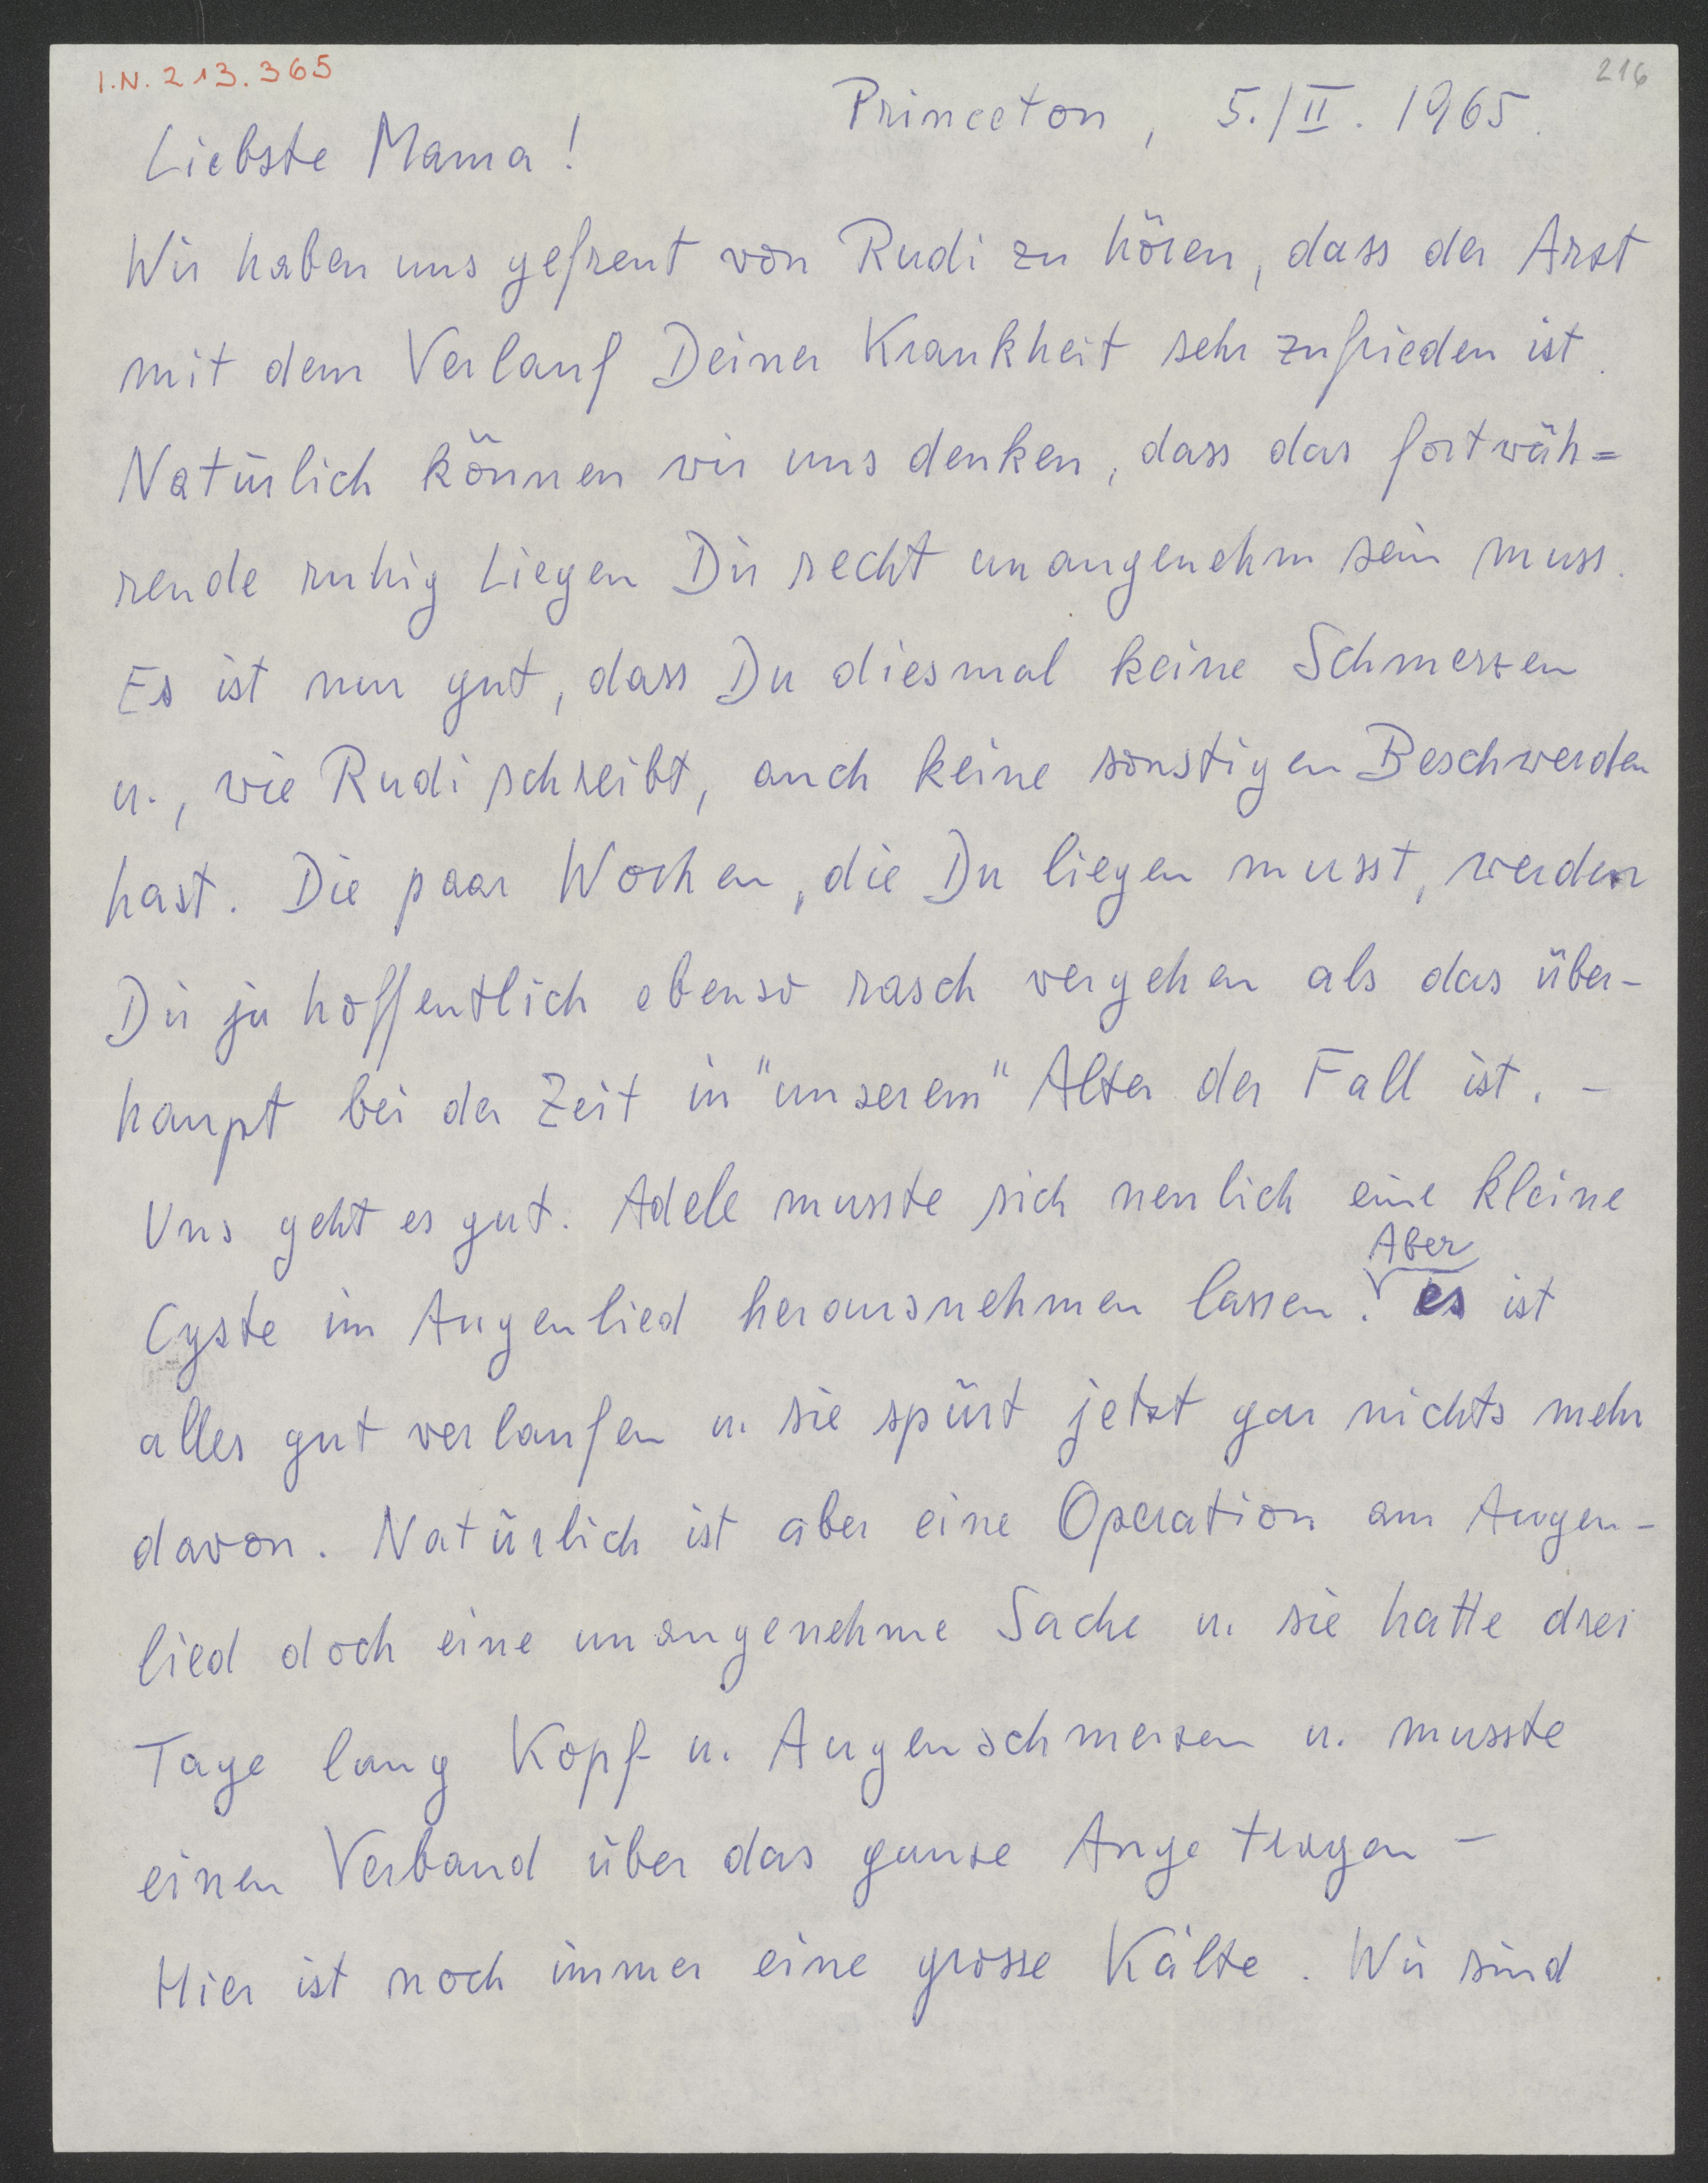 I.N. 213.365
216
Princeton, 5./II. 1965.
Liebste Mama!
Wir haben uns gefreut von Rudi zu hören, dass der Arzt
mit dem Verlauf Deiner Krankheit sehr zufrieden ist.
Natürlich können wir uns denken, dass das fortwäh=
rende ruhig Liegen Dir recht unangenehm sein muss.
Es ist nur gut, dass Du diesmal keine Schmerzen
u., wie Rudi schreibt, auch keine sonstigen Beschwerden
hast. Die paar Wochen, die Du liegen musst, werden
Dir ja hoffentlich ebenso rasch vergehen als das über-
haupt bei der Zeit in "unserem" Alter der Fall ist. -
Uns geht es gut. Adele musste sich neulich eine kleine
Aber
Cyste im Augenlied herausnehmen lassen. es ist
alles gut verlaufen u. sie spürt jetzt gar nichts mehr
davon. Natürlich ist aber eine Operation am Augen-
lied doch eine unangenehme Sache u. sie hatte drei
Tage lang Kopf- u. Augenschmerzen u. musste
einen Verband über das ganze Auge tragen -
Hier ist noch immer eine grosse Kälte. Wir sind